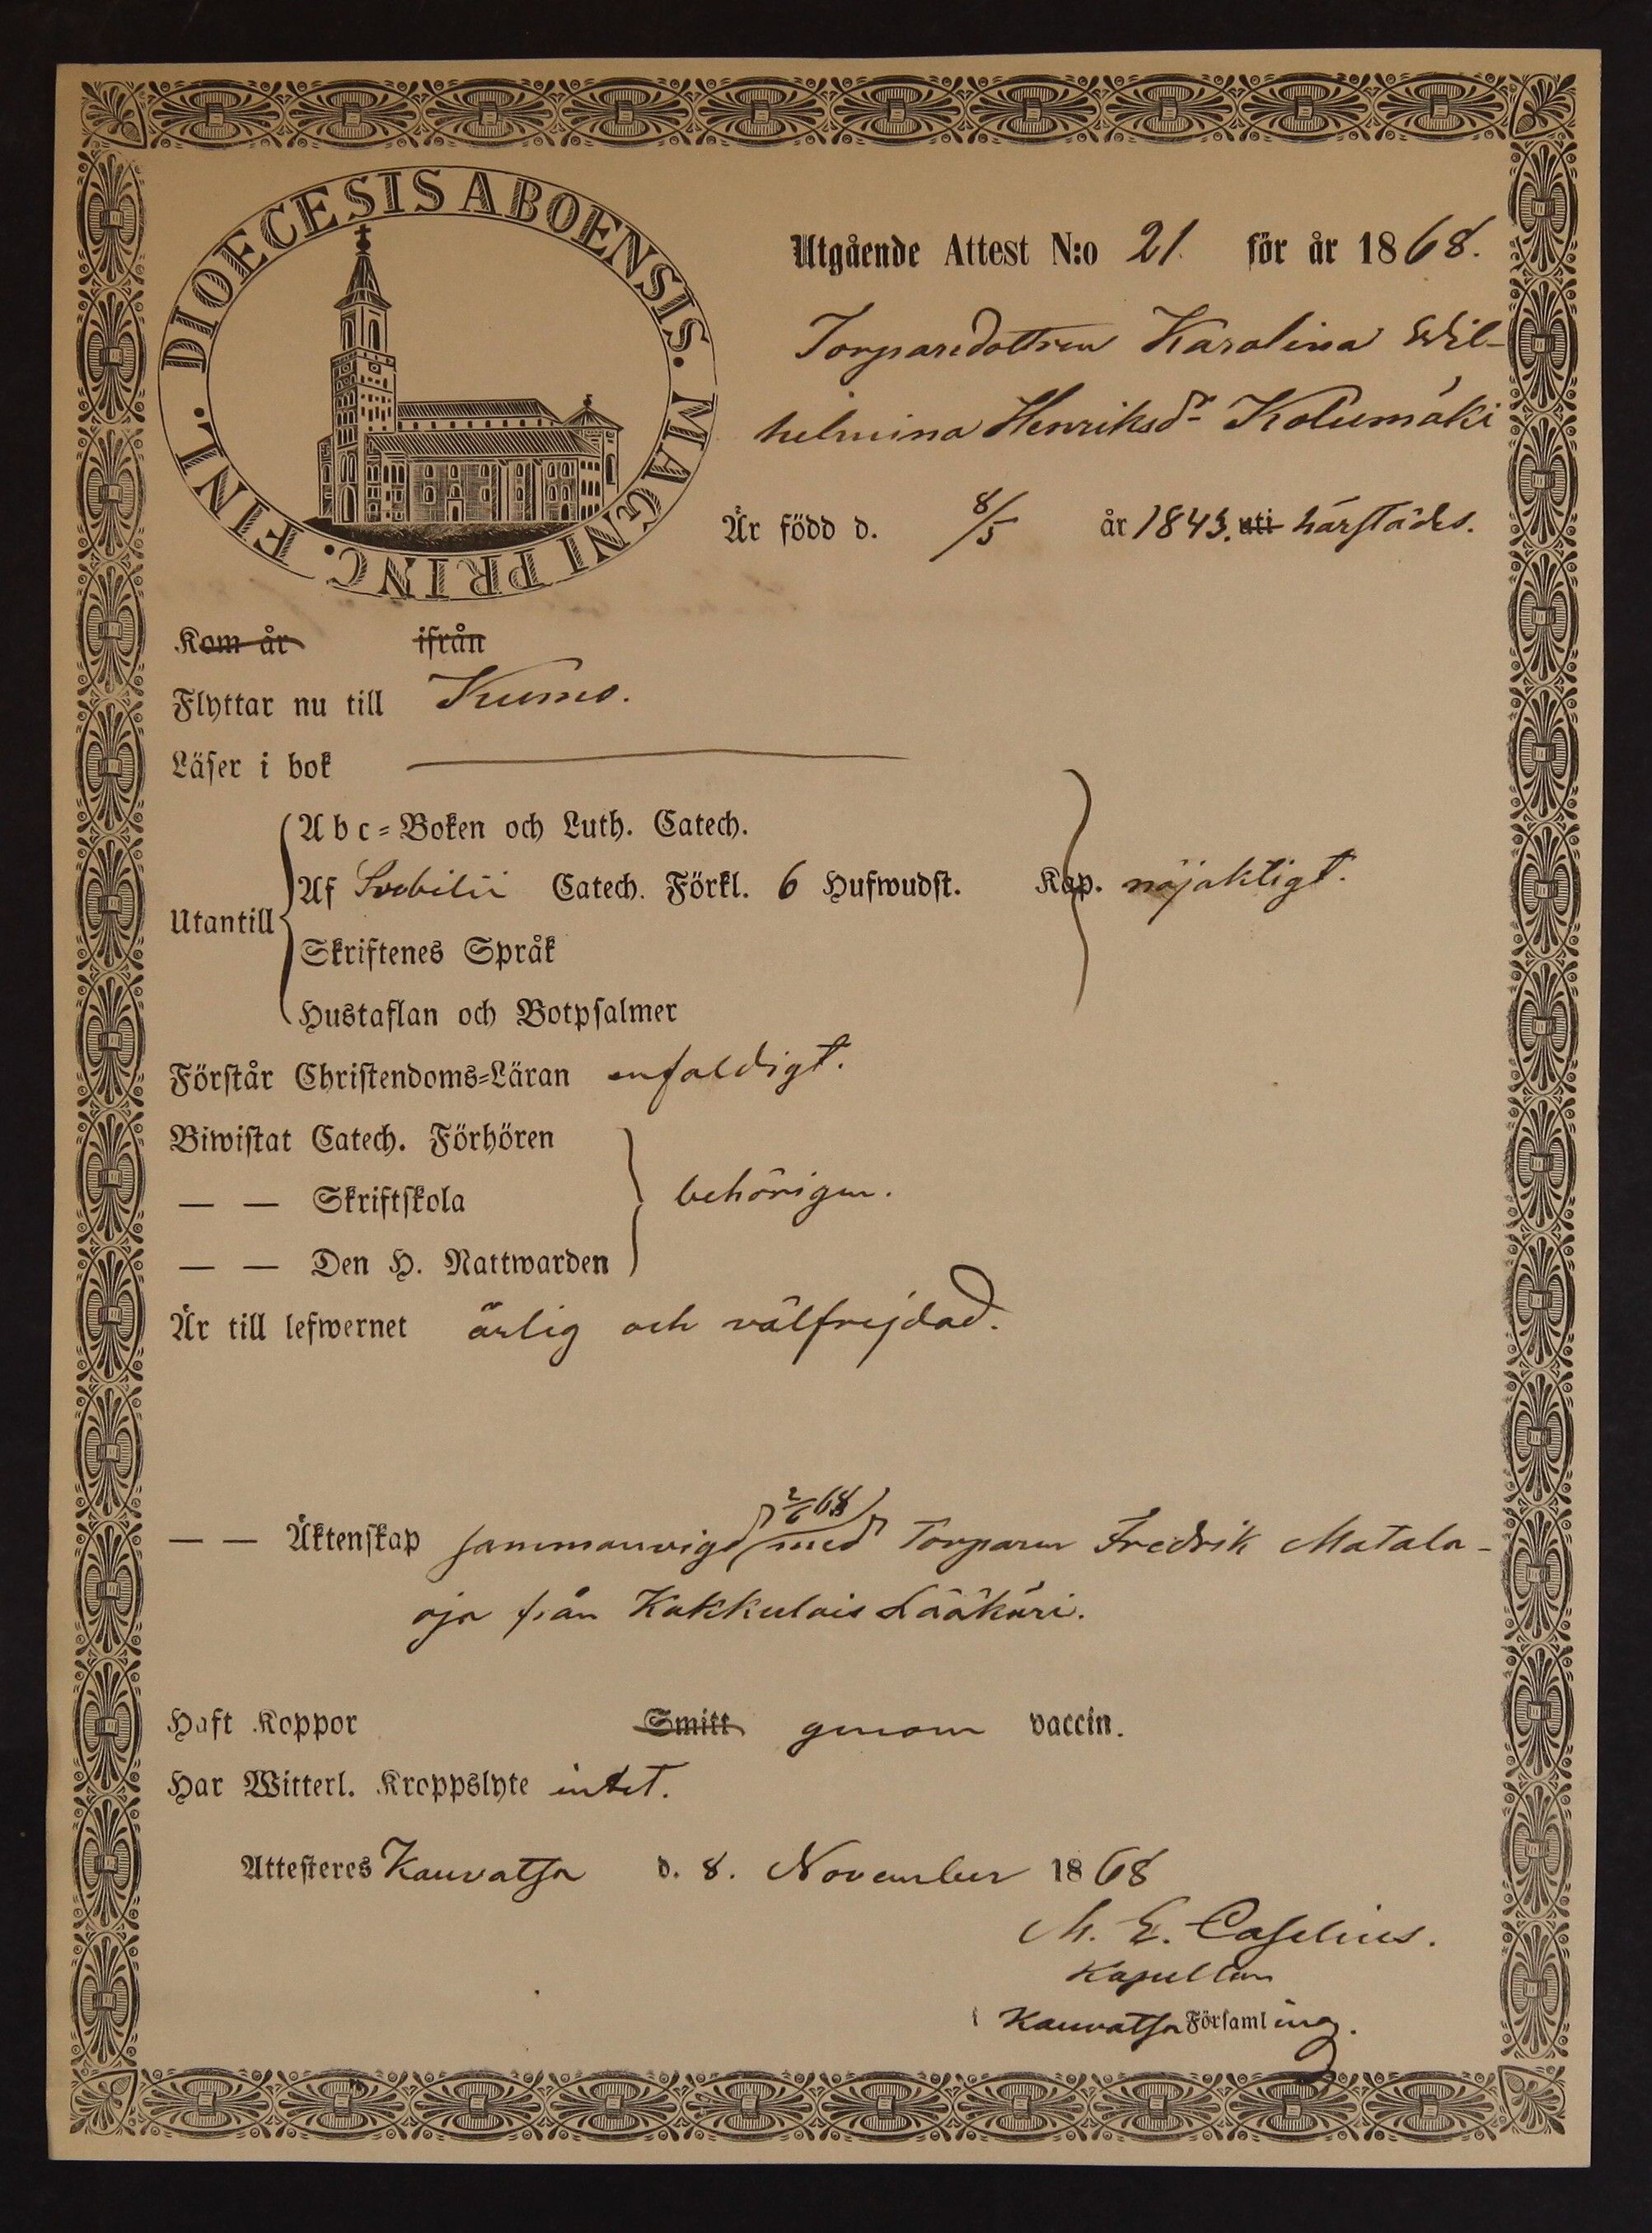 DIOECESIS ABOENSIS. MAGNI PRINC. FINL.
Utgående Attest N:o 21. för år 1868.
Torparedottren Karolina Wil-
helmina Henriksdr Kolumäki
Är född d. 8/5 år 1843. uti härstädes.
Kom år ifrån
Flyttar nu till Kumo.
Läser i bok
Utantill
Abc-Boken och Luth. Catech.
Af Svebilii Catech. Förkl. 6 Hufwudst. Kap. nöjaktigt.
Skriftenes Språk
Hustaflan och Botpsalmer
Förstår Christendoms-Läran enfaldigt.
Biwistat Catech. Förhören
— — Skriftskola behörigen.
— — Den H. Nattwarden
Är till lefwernet ärlig och välfrejdad.
2/6 68
— — Äktenskap sammanvigd med Torparen Fredrik Matala-
oja från Kakkulais Lääkäri.
Haft Koppor Smitt genom vaccin.
Har Witterl. Kroppslyte intet.
Attesteres Kauvatsa d. 8. November 1868
M. E. Caselius.
Kapellan
i Kauvatsa Församling.